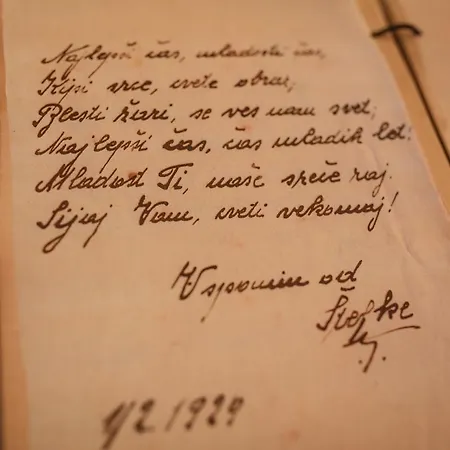 Najlepši čas, mladosti čas,
Kipi srce, cvete obraz,
Blesti žari, se ves nam svet,
Najlepši čas, čas mladih let!
Mladost Ti, naše sreče raj.
Sijaj Vam, cveti vekomaj!
V spomin od
Štefke
1/2 1929